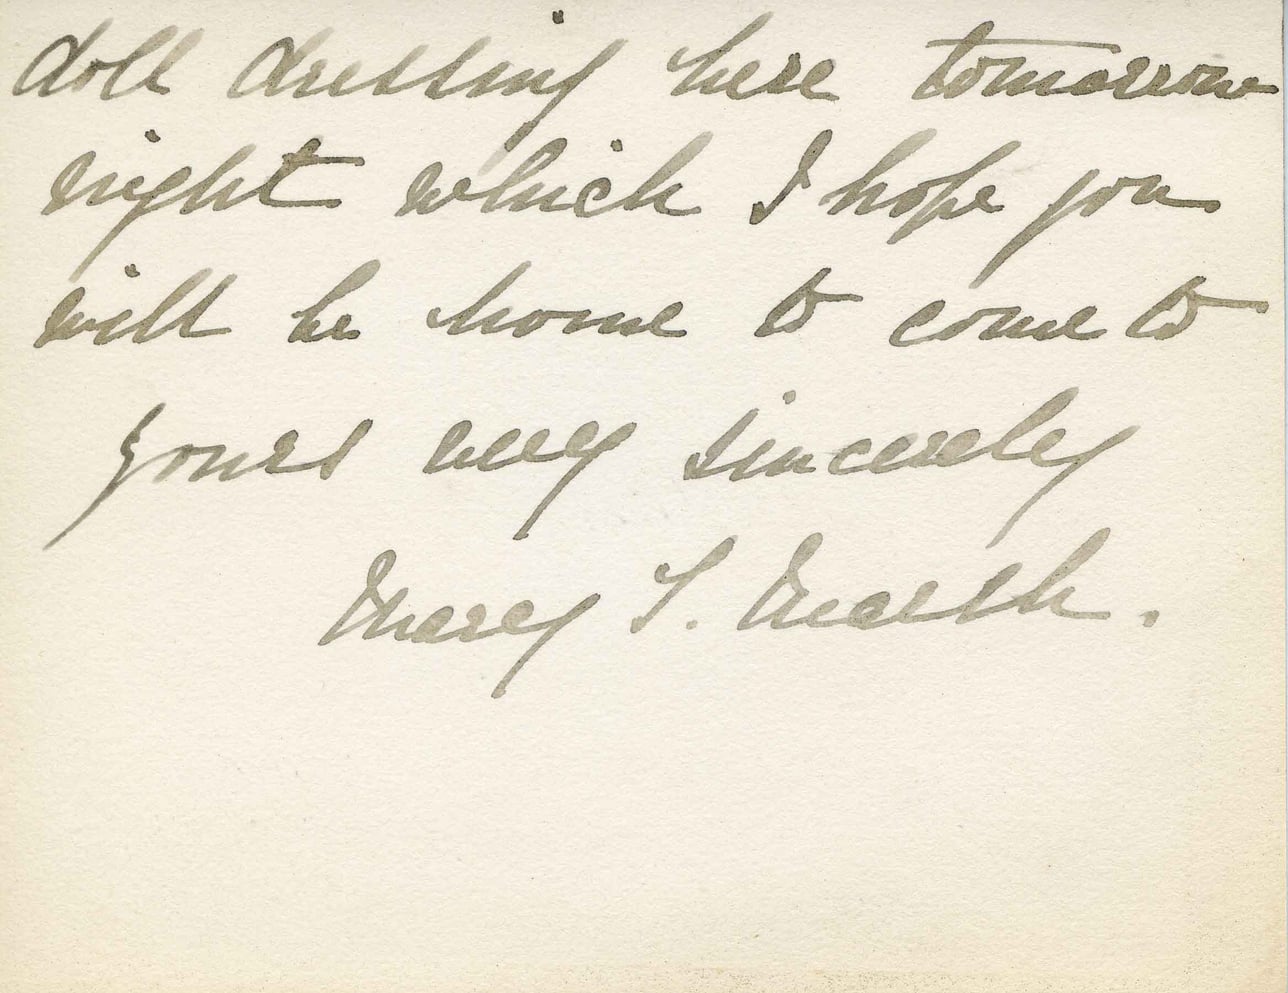 doll dressing here tomorrow
night which I hope you
will be home to come to
yours very sincerely
Mary S. Marsh.